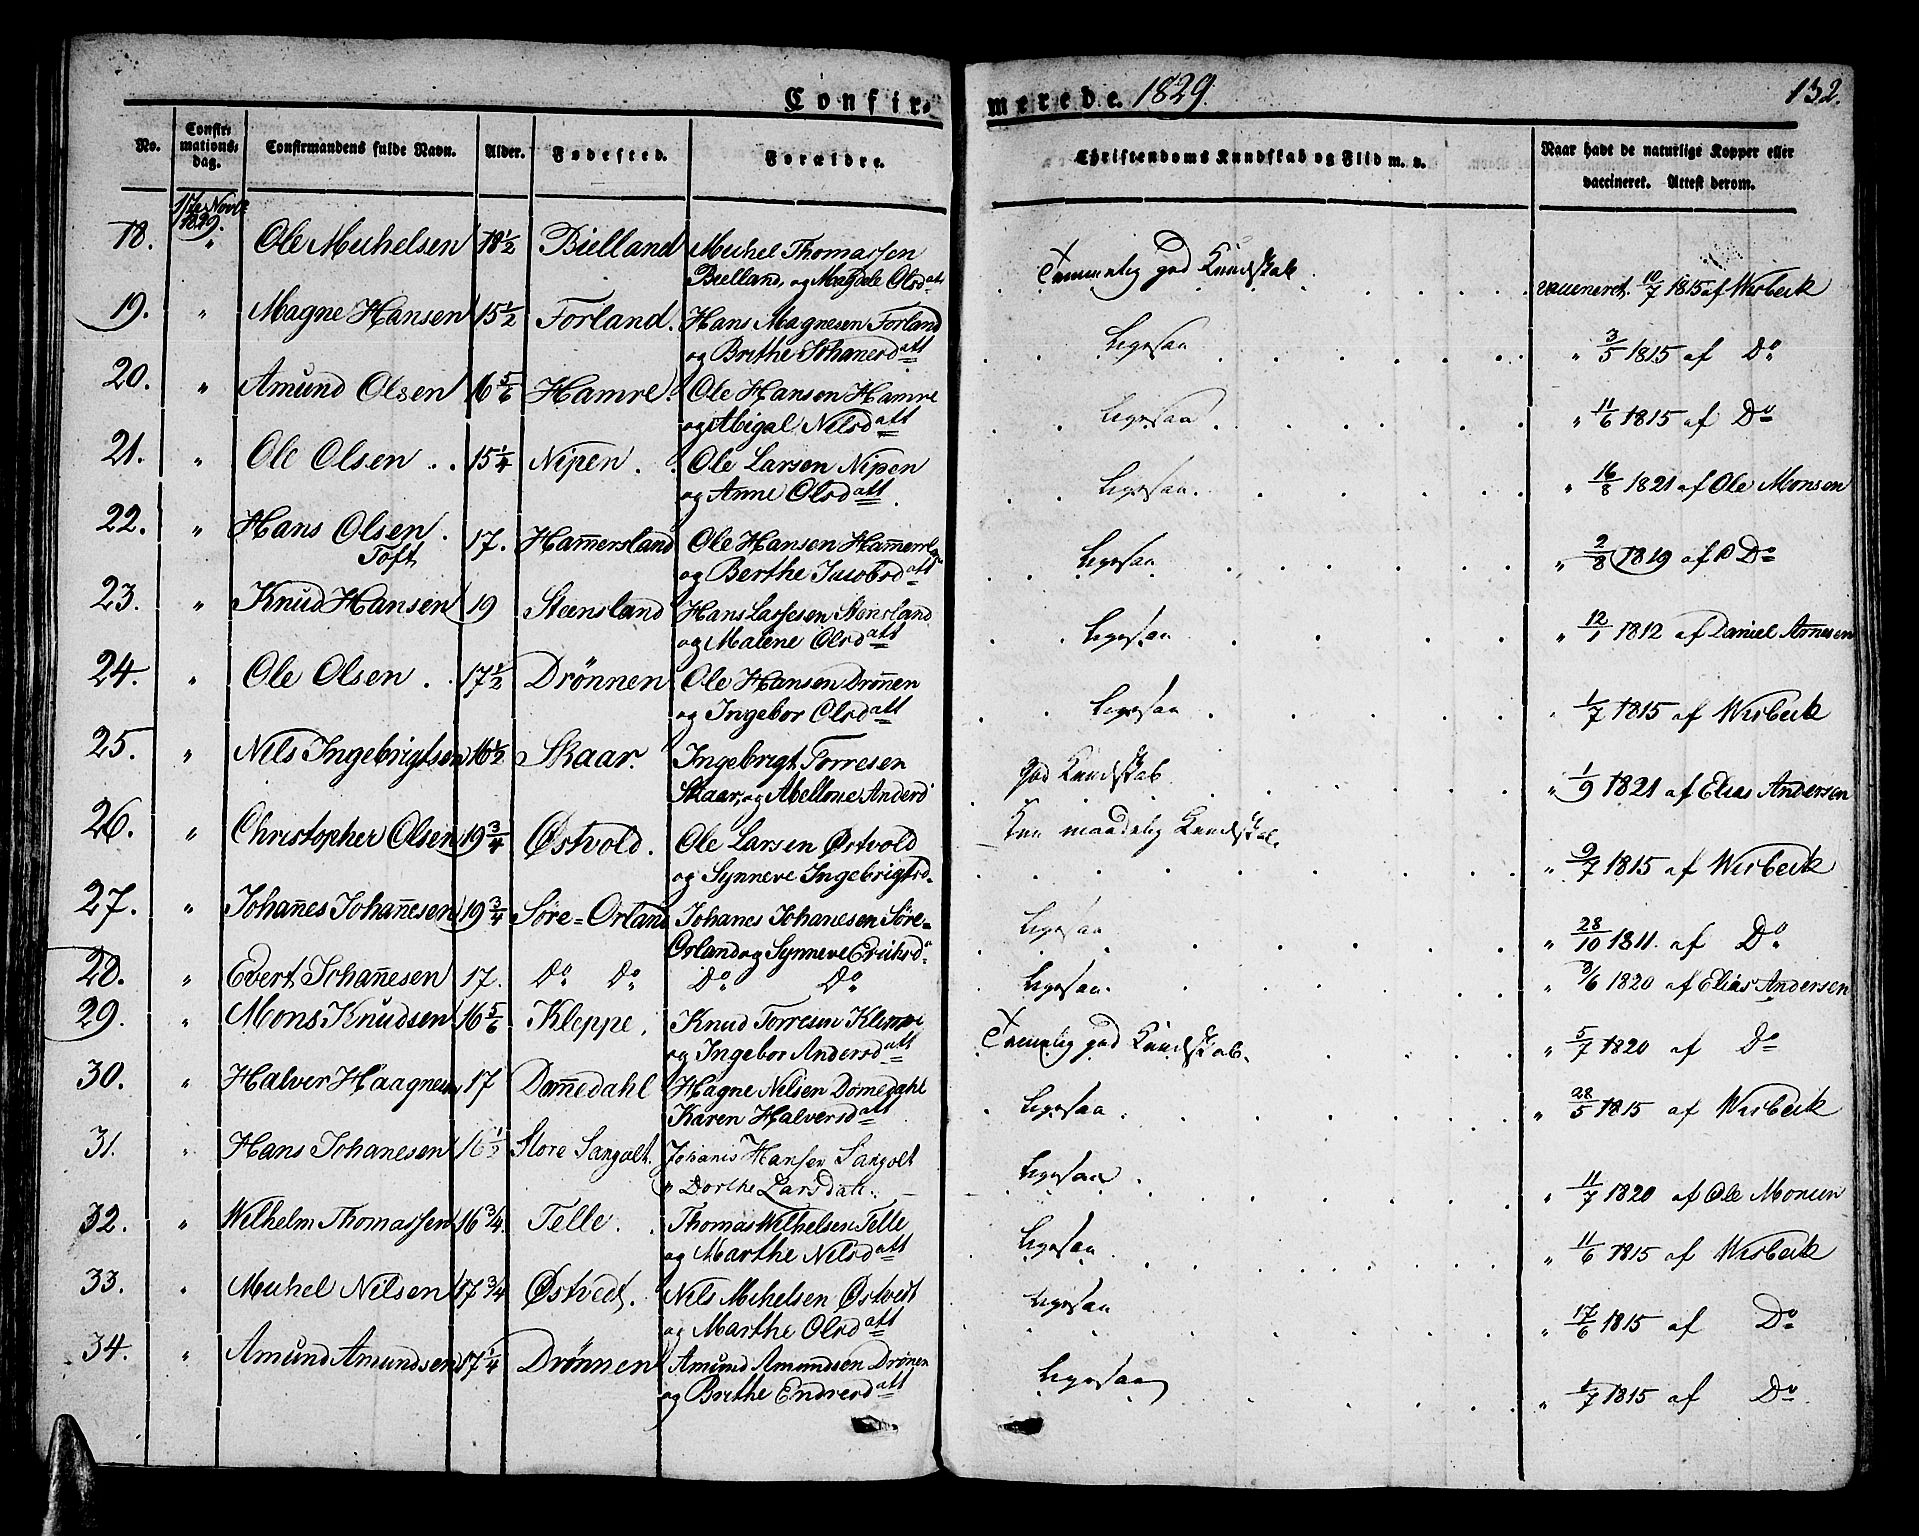 Confir-
merede 1829.
132.
No.
Confir-
mations-
dag.
Confirmandens fulde Navn.
Alder.
Fødested.
Forældre.
Christendoms Kundskab og Flid m. v.
Naar havt de naturlige Kopper eller
vaccineret. Attest derom.
1829.
18. " Ole Michelsen 18 1/2 Bielland Michel Thomassen
Bielland, og Magdele Olsdatt
Temmelig god Kundskab.
vaccineret. 10/7 1815 af Wisbeck
19. " Magne Hansen 15 1/2 Forland. Hans Magnesen Forland
og Brithe Johanesdatt
Ligesaa
" 3/5 1815 af Do
20. " Amund Olsen 16 5/6 Hamre. Ole Hansen Hamre
og Abigal Nilsdatt
Ligesaa
" 11/6 1815 af Do
21. " Ole Olsen 15 1/4 Nipen. Ole Larsen Nipen
og Anne Olsdatt
Ligesaa.
" 16/8 1821 af Ole Monsen
22. " Hans Olsen 17. Ham̄ersland Ole Hansen
Toft
og Berthe Jacobsdatt
Ligesaa
" 2/8 1819 af Do
23. " Knud Hansen 19 Steensland Hans Lassesen Stensland
og Malene Olsdatt
Ligesaa
" 12/1 1812 af Daniel Arnesen
24. " Ole Olsen 17 1/2 Drönnen Ole Hansen Drön̄en
og Ingebor Olsdatt
Ligesaa
" 1/7 1815 af Wisbeck
25. " Nils Ingebrigtsen 16 1/2 Skaar. Ingebrigt Torresen
Skaar, og Abellone Andersd
god Kundskab
" 1/9 1821 af Elias Andersen
26. " Christopher Olsen 19 3/4 Østvold. Ole Larsen Østvold
og Synneve Ingebrigtsd.
Kun maadelig Kundskab.
" 9/7 1815 af Wisbeck
27. " Johan̄es Johan̄esen 19 3/4 Søre=Orland Johanes Johanesen Søre=
Orland og Synneve Eriksd.
Ligesaa
" 28/10 1811. af Do
28. " Evert Johan̄esen 17. Do Do Do Do
Ligesaa.
" 3/6 1820 af Elias Andersen
29. " Mons Knudsen 16 5/6 Kleppe. Knud Torresen Kleppe
og Ingebor Andersdatt
Temmelig god Kundskab.
" 5/7 1820 af Do
30. " Halver Haagnesen 17 Dam̄edahl Hagne Nilsen Domedahl
Karen Halversdatt
Ligesaa.
" 28/5 1815 af Wisbeck
31. " Hans Johanesen Store Sangolt Johanis Hansen Sangolt
" Dorthe Larsdatt.
Ligesaa
" 11/7 1820 af Ole Monsen
32. " Wilhelm Thomassen 16 3/4. Telle. Thomas Wilhelsen Telle
og Marthe Nilsdatt
Ligesaa
" 11/6 1815 af Wisbeck
33. " Michel Nilsen 17 3/4 Østvedt. Nils Mihelsen Østvedt
og Marthe Olsdatt
Ligesaa
" 17/6 1815 af Do
34. " Amund Amundsen 17 1/4 Drönnen Amund Amundsen Drönen
og Brithe Endresdatt
Ligesaa
" 1/7 1815 af Do.